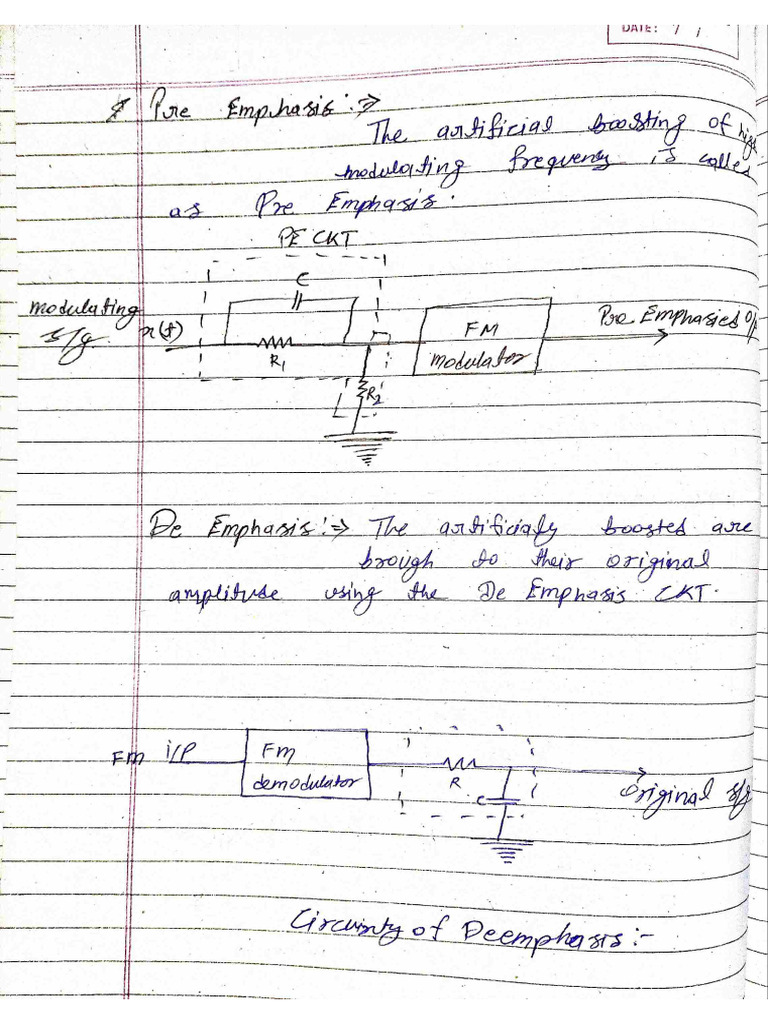 DATE: / /
Pre Emphasis :⇒
The artificial boosting of high
modulating frequency is called
as Pre Emphasis.
PE CKT
C
modulating
s/g x(t)
R1
FM
modulator
Pre Emphasied o/p
R2
De Emphasis :⇒ The artificialy boosted are
brough to their original
amplitude using the De Emphasis CKT.
Fm i/P
Fm
demodulator
R
C
Original s/g
Circuirty of Deemphasis :-